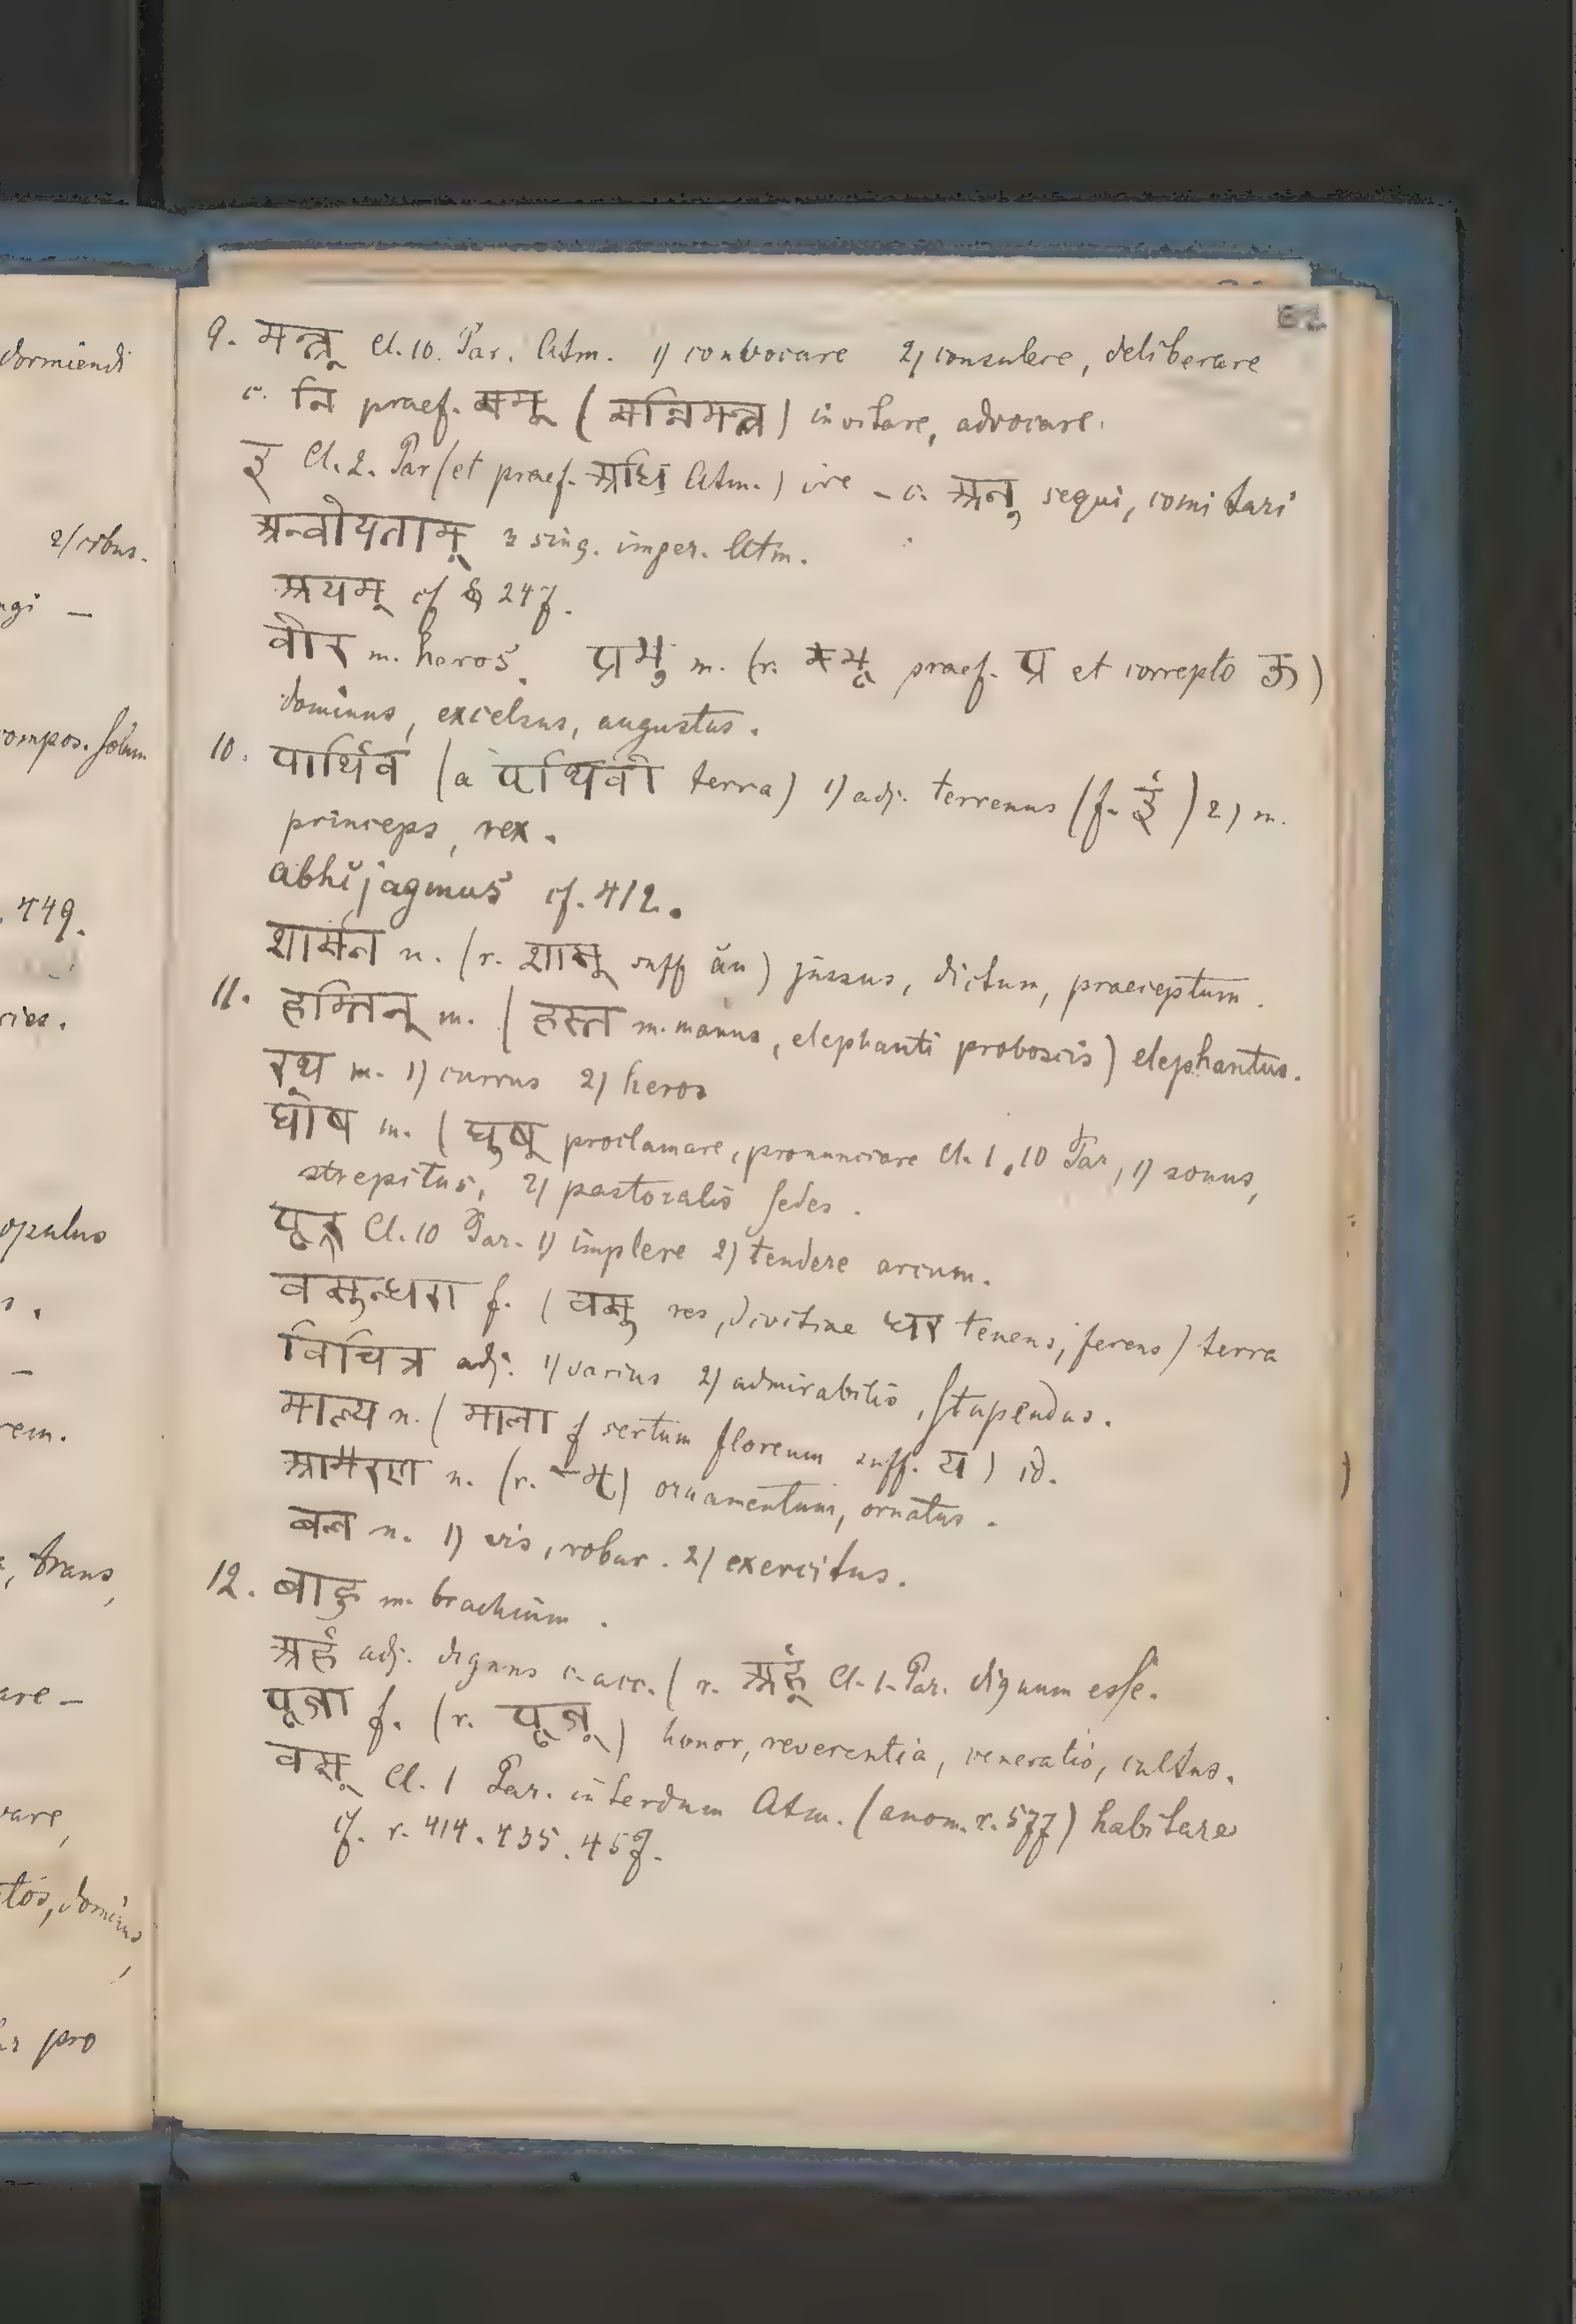 9. मन्त्र् Cl. 10. Par. Atm. 1) convocare 2) consulere, deliberare
c. नि praef. सम् (सन्निमन्त्र्) invitare, advocare.
इ Cl. 2. Par (et praef. अधि Atm.) ire – c. अनु sequi, comitari
अन्वीयताम् 3 sing. imper. Atm.
अयम् cf § 247.
वीर m. heros. प्रभु m. (r. भू praef. प्र et correpto ऊ)
dominus, excelsus, augustus.
10. पार्थिव (a पृथिवी terra) 1) adj. terrenus (f. ई) 2) m.
princeps, rex.
abhijagmus cf. 412.
शासन n. (r. शास् suff ăn) jussus, dictum, praeceptum.
11. हस्तिन् m. (हस्त m. manus, elephanti proboscis) elephantus.
रथ m. 1) currus 2) heros
घोष m. (घुष् proclamare, pronunciare Cl. 1, 10 Par, 1) sonus,
strepitus, 2) pastoralis sedes.
पूर् Cl. 10 Par. 1) implere 2) tendere arcum.
वसुन्धरा f. (वसु res, divitiae धर tenens, ferens) terra
विचित्र adj. 1) varius 2) admirabilis, stupendus.
माल्य n. (माला f sertum floreum suff. य) id.
आभरण n. (r. भृ) ornamentum, ornatus.
बल n. 1) vis, robur. 2) exercitus.
12. बाहु m. brachium.
अर्ह adj. dignus c. acc. (r. अर्ह् Cl. 1. Par. dignum esse.
पूजा f. (r. पूज्) honor, reverentia, veneratio, cultus.
वस् Cl. 1 Par. interdum Atm. (anom. r. 577) habitare
cf. r. 414. 435. 457.
dormiendi
2) cibus.
compos. solum
449.
opulus
trans,
are –
vare,
dominus,
pro